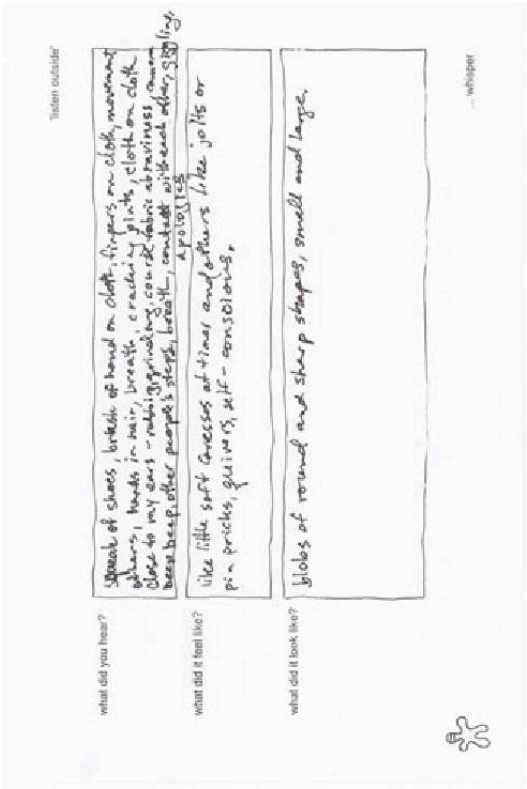 'listen outside'
what did you hear?
squeak of shoes, brush of hand on cloth, fingers on cloth, movement
others, hands in hair, breath, cracking joints, cloth on cloth
close to my ears - rubbing, grinding, course fabric abraviness, camera
beep beep, other people's steps, breath, contact with each other, giggling,
apologies
what did it feel like?
like little soft caresses at times and others like jolts or
pin pricks, quivers, self-conscious.
what did it look like?
blobs of round and sharp shapes, small and large.
... whisper